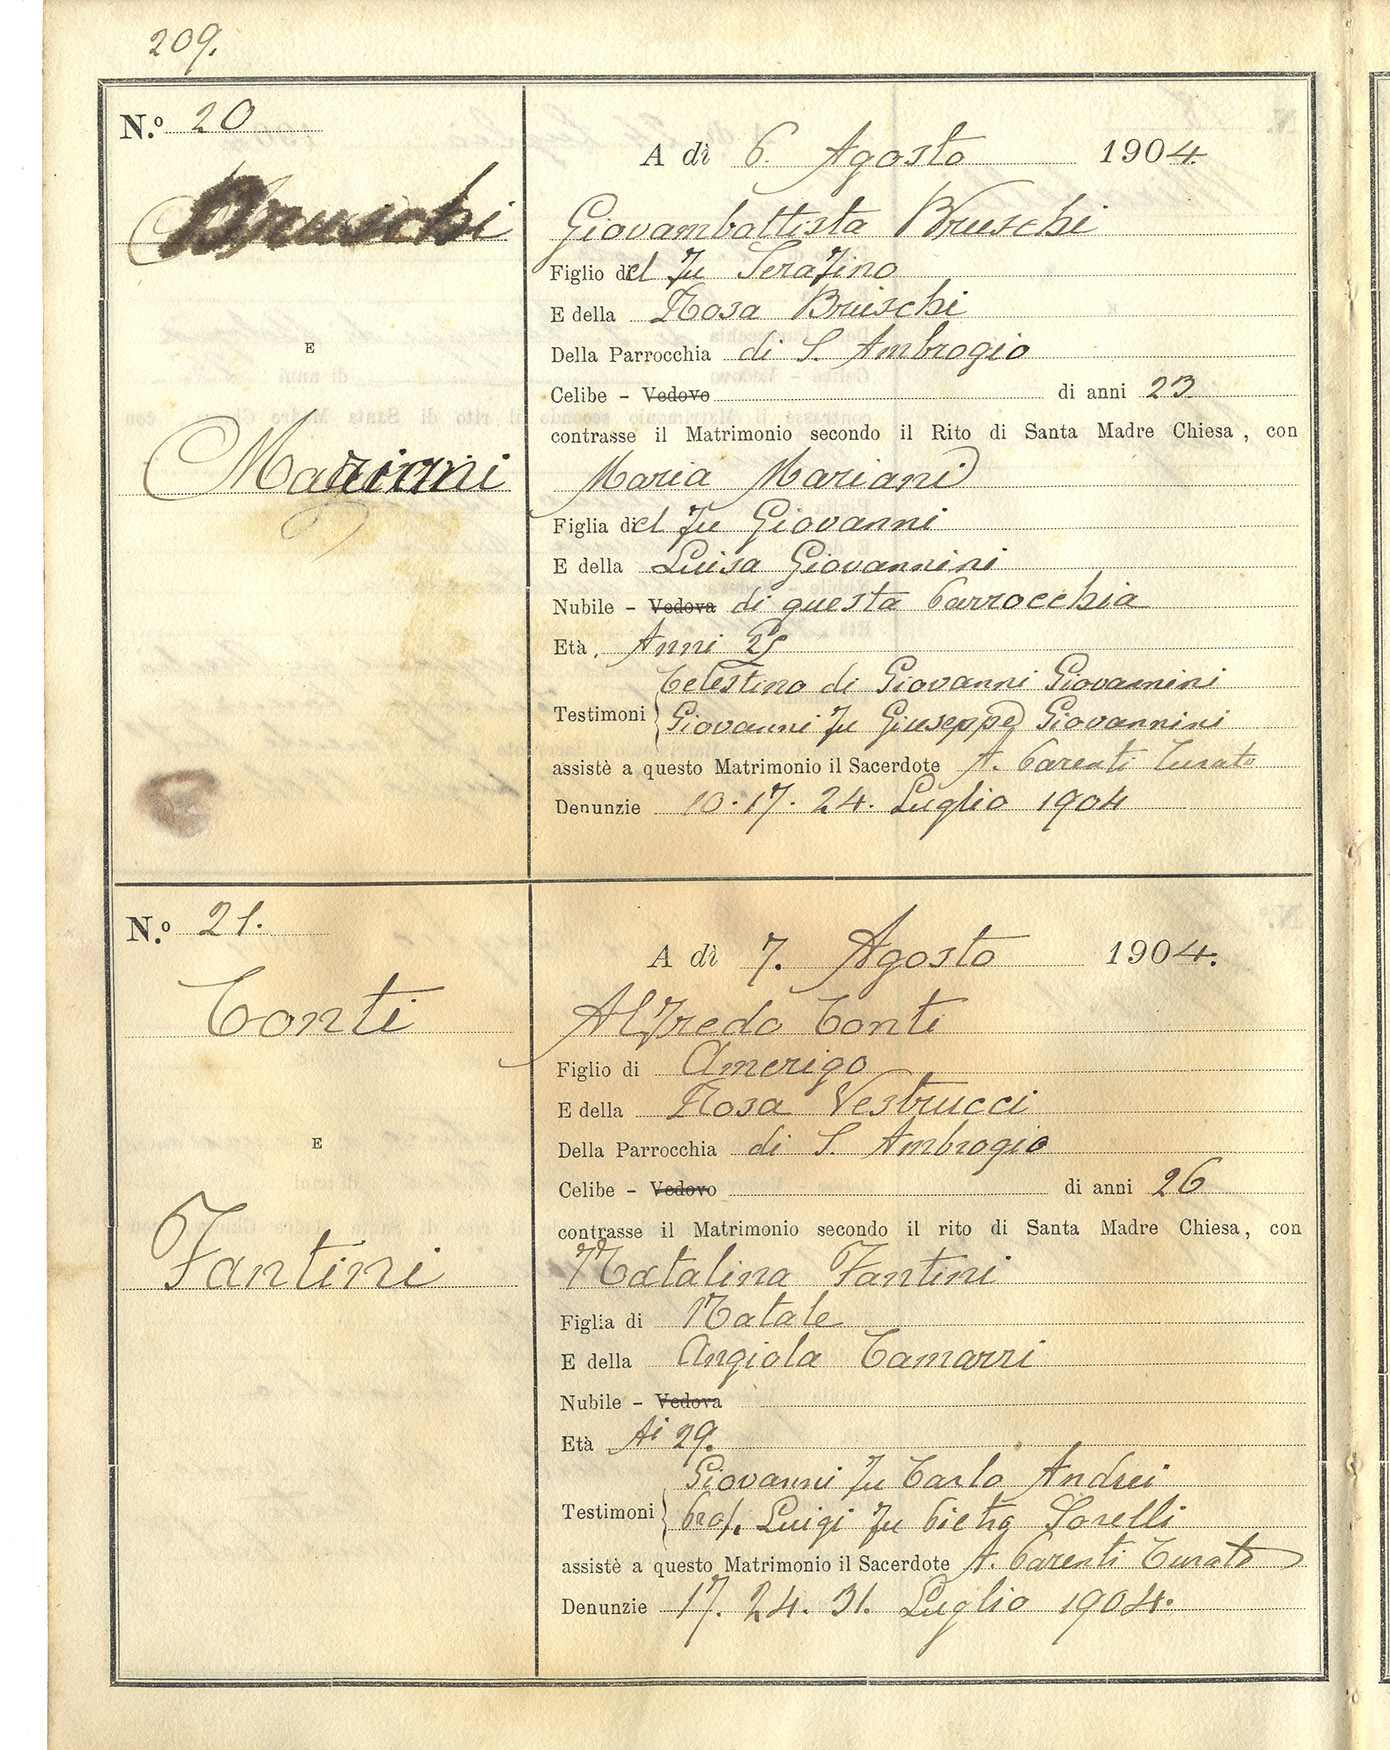 209.
N.º 20
Bruschi
E
Mariani
A dì 6. Agosto 1904.
Giovambattista Bruschi
Figlio del fu Serafino
E della Rosa Bruschi
Della Parrocchia di S. Ambrogio
Celibe - Vedovo di anni 23
contrasse il Matrimonio secondo il Rito di Santa Madre Chiesa, con
Maria Mariani
Figlia del fu Giovanni
E della Luisa Giovannini
Nubile - Vedova di questa Parrocchia
Età, Anni
Celestino di Giovanni Giovannini
Testimoni Giovanni fu Giuseppe Giovannini
assistè a questo Matrimonio il Sacerdote A. Parenti Curato
Denunzie 10. 17. 24. Luglio 1904
N.º 21.
Conti
E
Fantini
A dì 7. Agosto 1904.
Alfredo Conti
Figlio di Amerigo
E della Rosa Vestrucci
Della Parrocchia di S. Ambrogio
Celibe - Vedovo di anni 26
contrasse il Matrimonio secondo il rito di Santa Madre Chiesa, con
Natalina Fantini
Figlia di Natale
E della Angiola Camarri
Nubile - Vedova
Età Ai 29.
Giovanni fu Carlo Andrei
Testimoni Prof. Luigi fu Pietro Sorelli
assistè a questo Matrimonio il Sacerdote A. Parenti Curato
Denunzie 17. 24. 31. Luglio 1904.